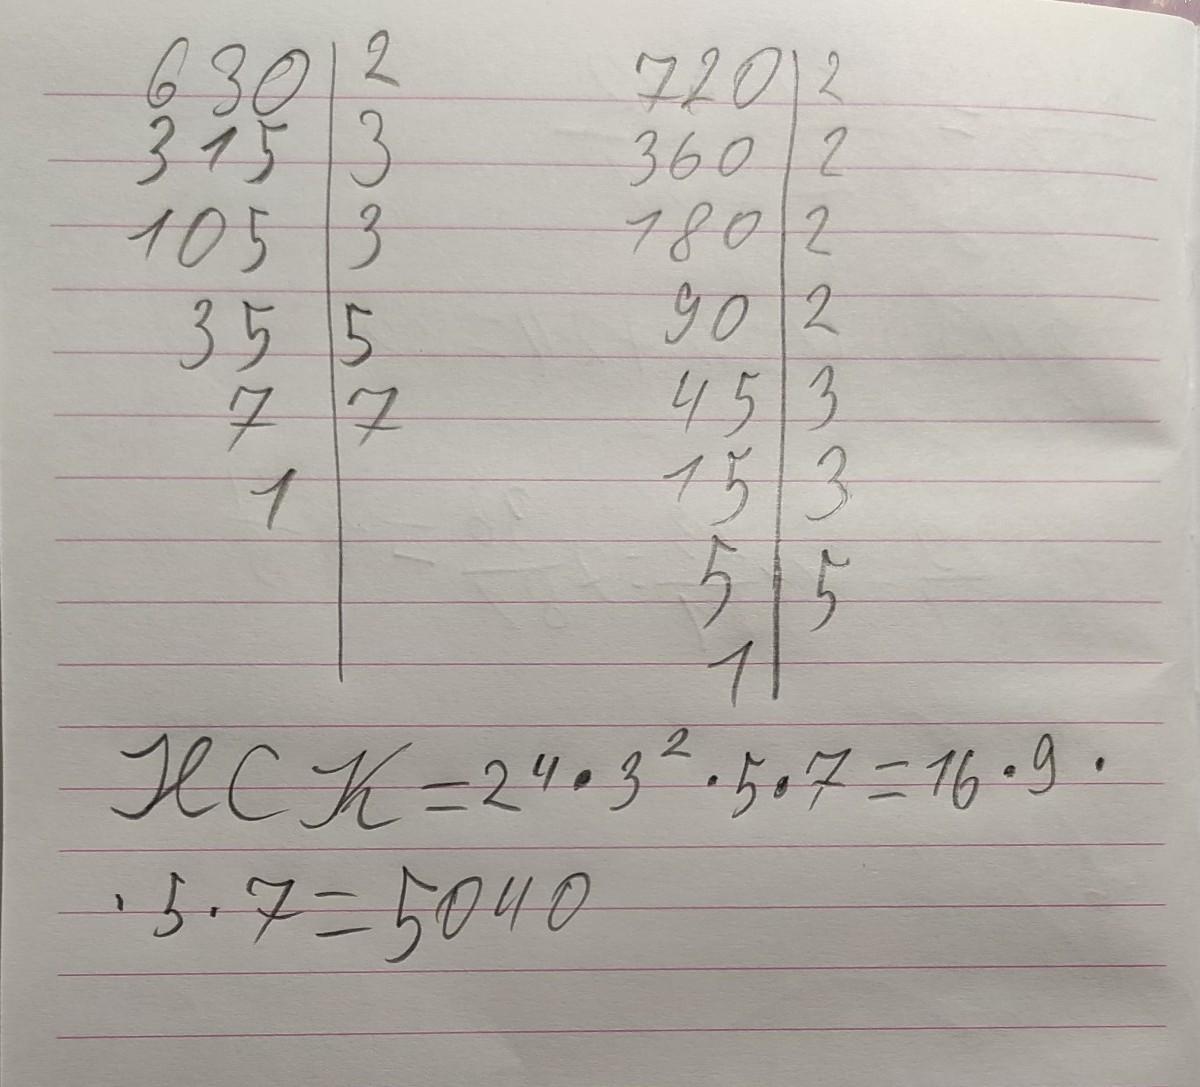 630 | 2
315 | 3
105 | 3
35 | 5
7 | 7
1 |
720 | 2
360 | 2
180 | 2
90 | 2
45 | 3
15 | 3
5 | 5
1 |
НСК = 2⁴ · 3² · 5 · 7 = 16 · 9 ·
· 5 · 7 = 5040